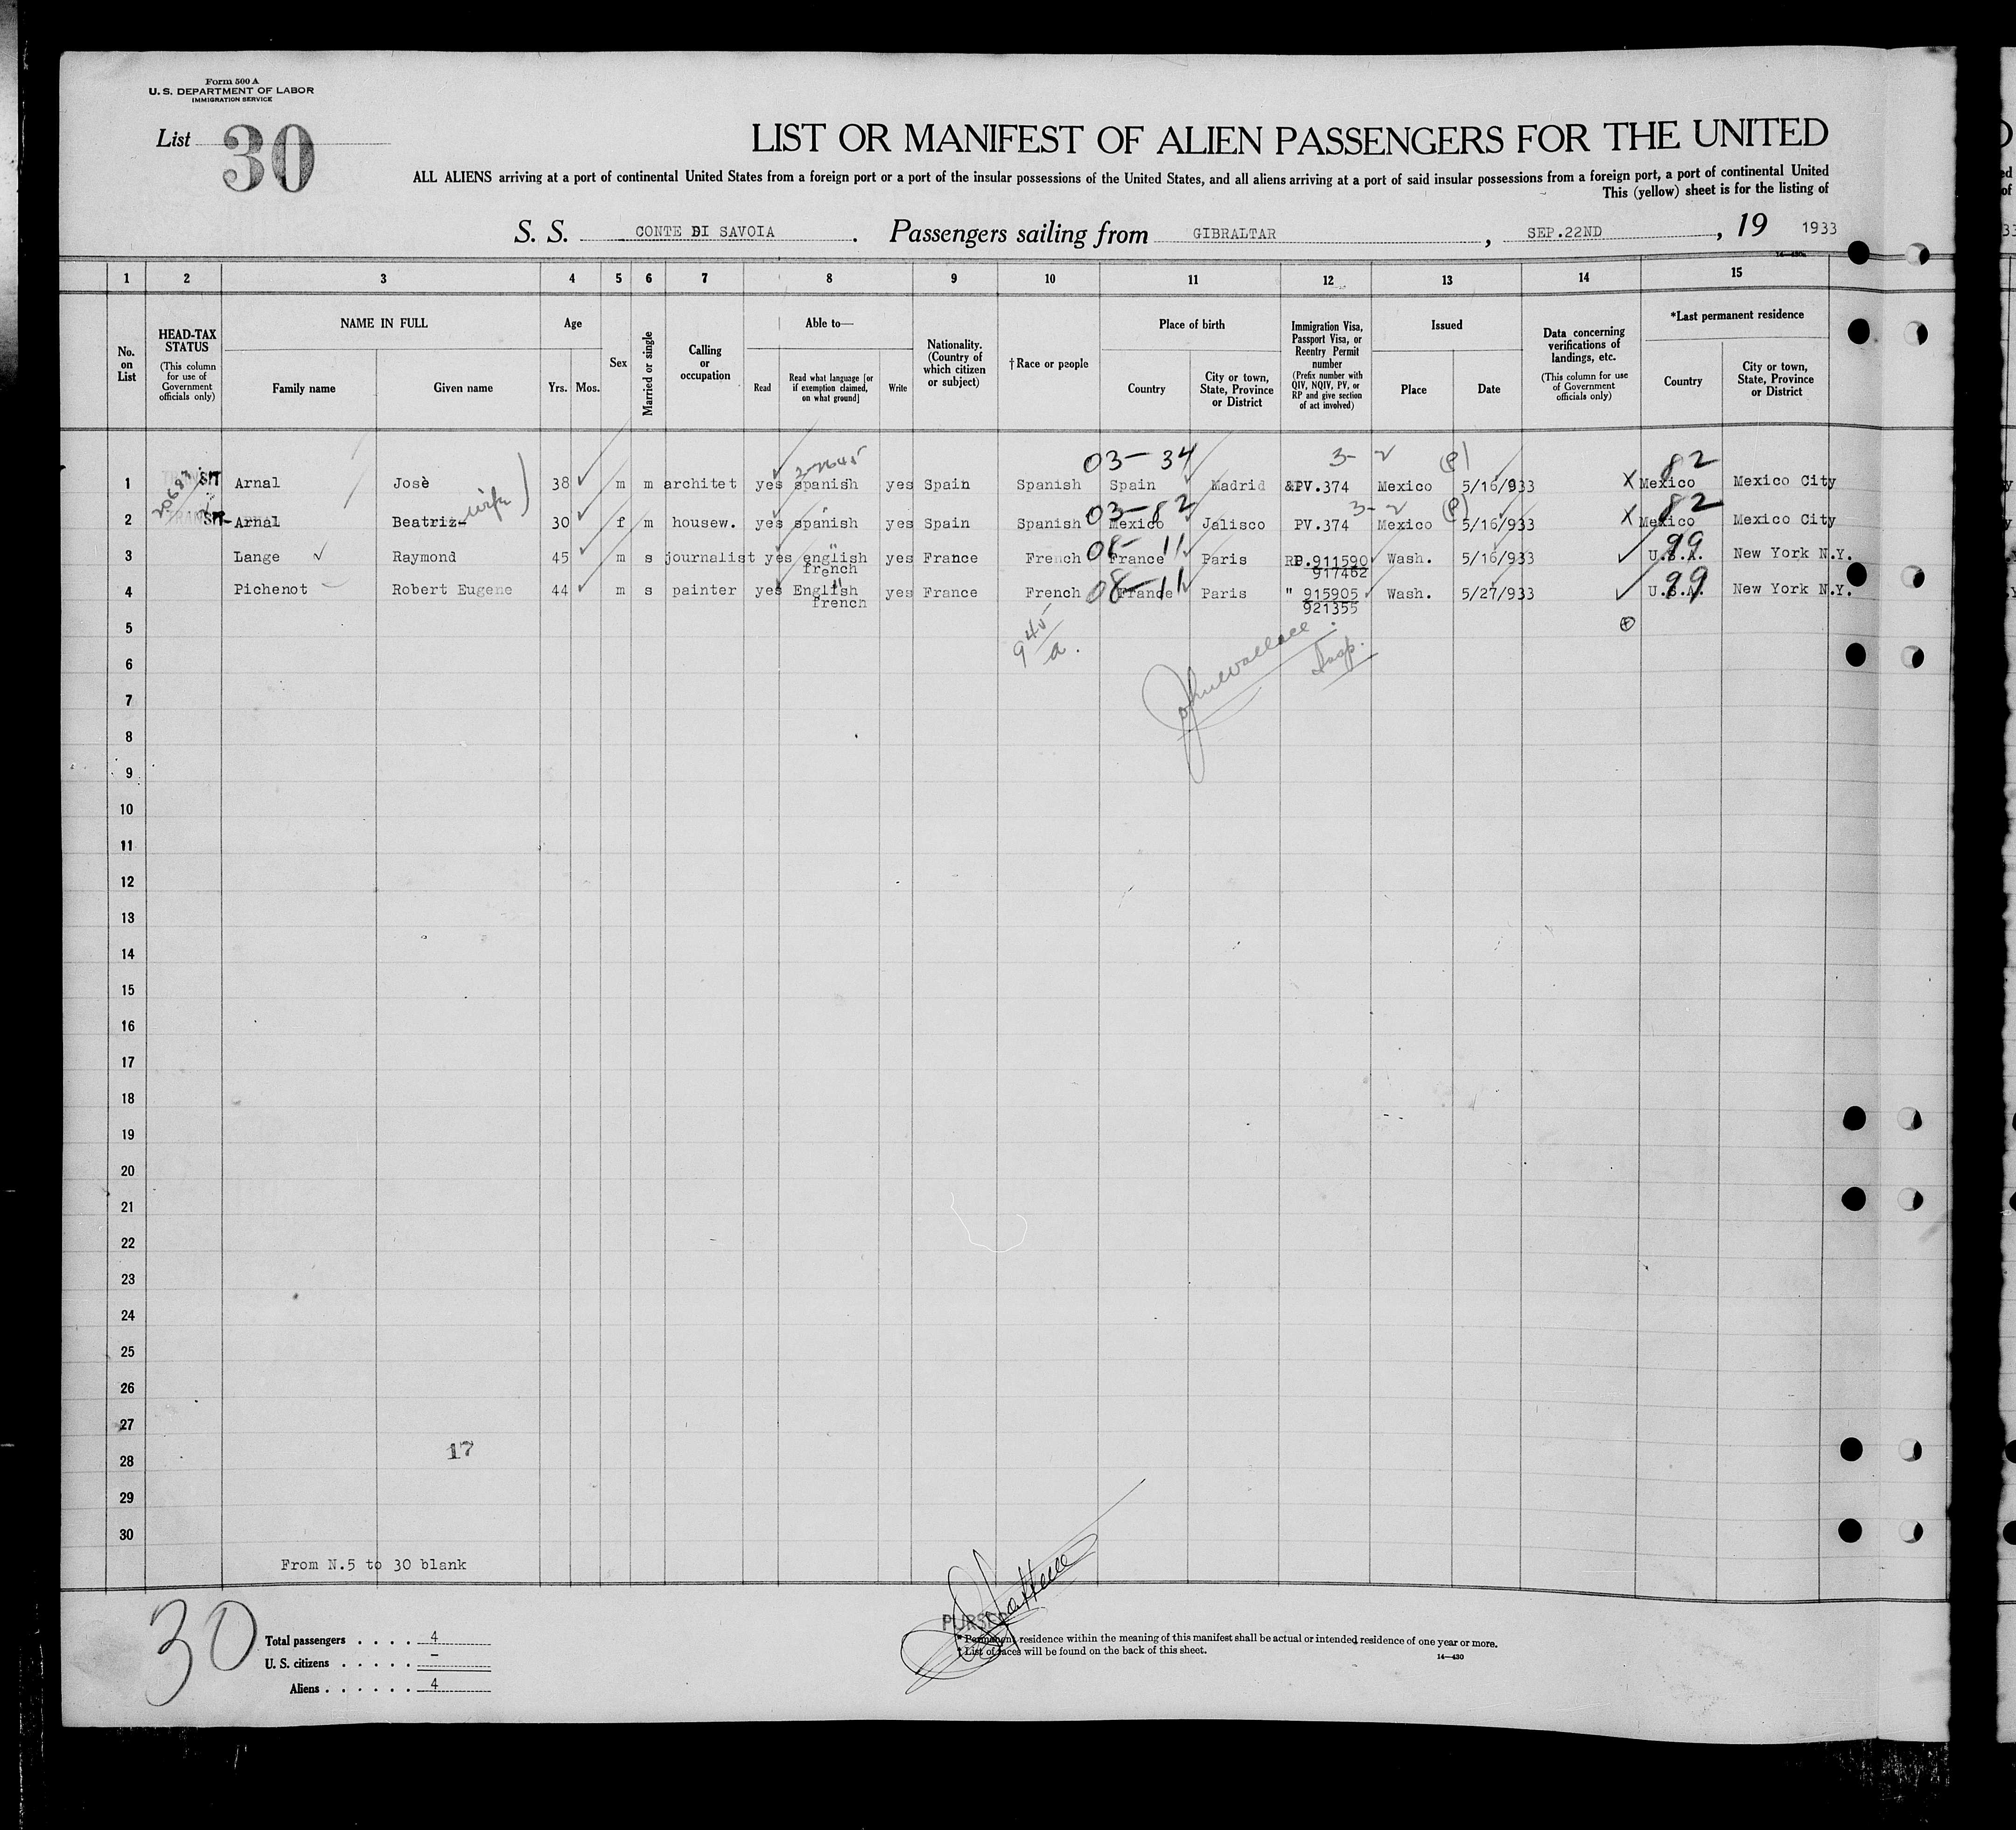 Form 500 A
U. S. DEPARTMENT OF LABOR
IMMIGRATION SERVICE
List 30
LIST OR MANIFEST OF ALIEN PASSENGERS FOR THE UNITED
ALL ALIENS arriving at a port of continental United States from a foreign port or a port of the insular possessions of the United States, and all aliens arriving at a port of said insular possessions from a foreign port, a port of continental United
This (yellow) sheet is for the listing of
S. S. CONTE DI SAVOIA. Passengers sailing from GIBRALTAR, SEP.22ND, 19 1933
14—430
1 2 3 4 5 6 7 8 9 10 11 12 13 14 15
No. on List
HEAD-TAX STATUS (This column for use of Government officials only)
NAME IN FULL
Family name Given name
Age
Yrs. Mos.
Sex
Married or single
Calling or occupation
Able to—
Read Read what language [or if exemption claimed, on what ground] Write
Nationality. (Country of which citizen or subject)
†Race or people
Place of birth
Country City or town, State, Province or District
Immigration Visa, Passport Visa, or Reentry Permit number (Prefix number with QIV, NQIV, PV, or RP and give section of act involved)
Issued
Place Date
Data concerning verifications of landings, etc. (This column for use of Government officials only)
*Last permanent residence
Country City or town, State, Province or District
2-2645 03-34 3-2 (P) 82
1 Arnal Josè 38 m m architet yes spanish yes Spain Spanish Spain Madrid PV.374 Mexico 5/16/933 X Mexico Mexico City
wife 03-82 3-2 (P) 82
2 Arnal Beatriz 30 f m housew. yes spanish yes Spain Spanish Mexico Jalisco PV.374 Mexico 5/16/933 X Mexico Mexico City
08-11 99
3 Lange Raymond 45 m s journalist yes english yes France French France Paris RP.911590 Wash. 5/16/933 U.S.A. New York N.Y.
french 917462
08-11 99
4 Pichenot Robert Eugene 44 m s painter yes English yes France French France Paris " 915905 Wash. 5/27/933 U.S.A. New York N.Y.
french 921355
5
945 a.
John Wallace Insp.
6
7
8
9
10
11
12
13
14
15
16
17
18
19
20
21
22
23
24
25
26
27
17
28
29
30
From N.5 to 30 blank
30
PURSER
Total passengers . . . . 4
U. S. citizens . . . . . –
Aliens . . . . . . 4
* Permanent residence within the meaning of this manifest shall be actual or intended residence of one year or more.
† List of races will be found on the back of this sheet.
14—430